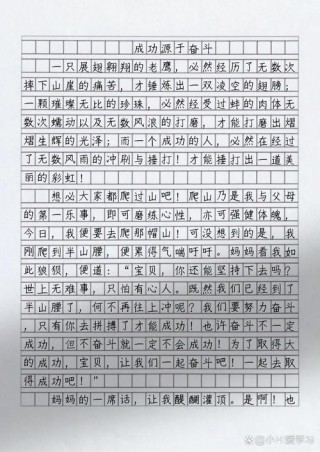 成功源于奋斗
一只展翅翱翔的老鹰，必然经历了无数次
摔下山崖的痛苦，才锤炼出一双凌空的翅膀；
一颗璀璨无比的珍珠，必然经受过蚌的肉体无
数次蠕动以及无数风浪的打磨，才能打磨出熠
熠生辉的光泽；而一个成功的人，必然在经过
了无数风雨的冲刷与捶打！才能打出一道美
丽的彩虹！
想必大家都爬过山吧！爬山乃是我与父母
的第一乐事，即可磨练心性，亦可强健体魄，
今日，我便要去爬那帽山！可没想到的是，我
刚爬到半山腰，便累得气喘吁吁。妈妈看我如
此狼狈，便道：“宝贝，你还能坚持下去吗？
世上无难事，只怕有心人。既然我们已经到了
半山腰了，何不再往上冲呢？我们要努力奋斗
，只有你去拼搏了才能成功！也许奋斗不一定
成功，但不奋斗就一定不会成功！为了取得大
的成功，宝贝，让我们一起奋斗吧！一起去取
得成功吧！”
妈妈的一席话，让我醍醐灌顶。是啊！也